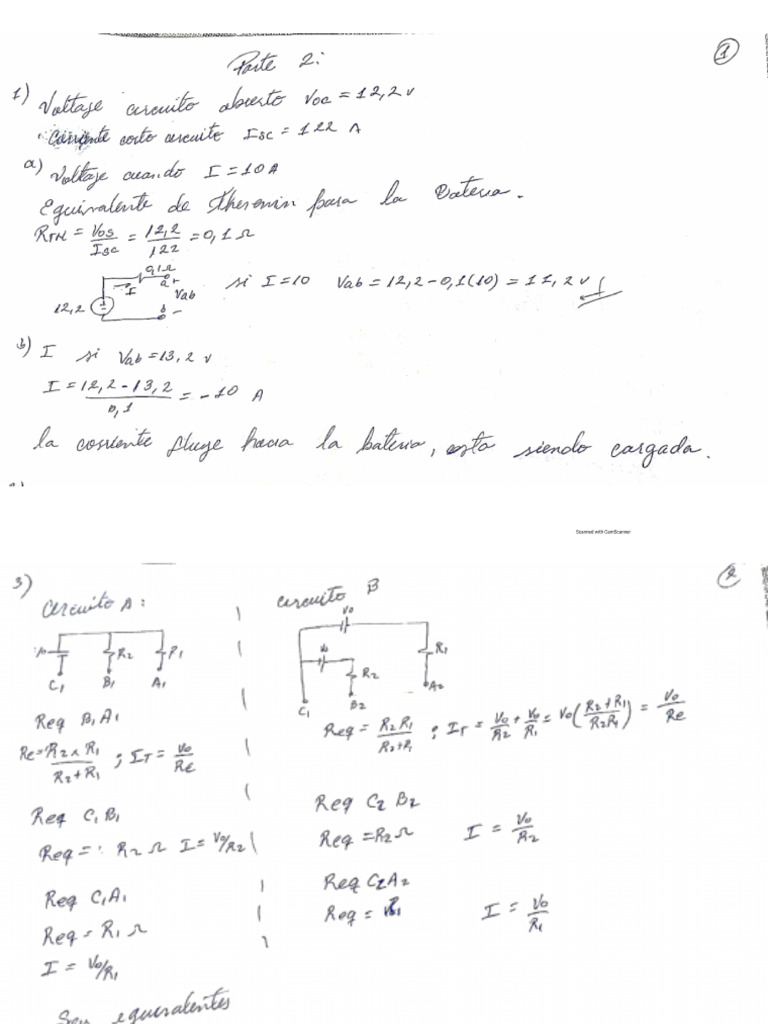 1
Parte 2:
1) Voltaje circuito abierto Voc = 12,2 v
Corriente corto circuito Isc = 122 A
a) Voltaje cuando I = 10 A
Equivalente de Thevenin para la Bateria.
RTH = Vos/Isc = 12,2/122 = 0,1 Ω
0,1Ω
I
a +
Vab
b −
12,2
si I = 10 Vab = 12,2 − 0,1(10) = 11,2 v
b) I si Vab = 13,2 v
I = 12,2 − 13,2 / 0,1 = −10 A
la corriente fluye hacia la bateria, esta siendo cargada.
Scanned with CamScanner
2
3) Circuito A:
Vo R2 R1
C1 B1 A1
Req B1A1
Re = R2 x R1 / R2 + R1 ; IT = Vo/Re
Req C1B1
Req = R2 Ω I = Vo/R2
Req C1A1
Req = R1 Ω
I = Vo/R1
Son equivalentes
circuito B
Vo
Vo
R1
R2
A2
C1 B2
Req = R2 R1 / R2 + R1 ; IT = Vo/R2 + Vo/R1 = Vo (R2 + R1 / R2R1) = Vo/Re
Req C2 B2
Req = R2 Ω I = Vo/R2
Req C2A2
Req = R1 I = Vo/R1